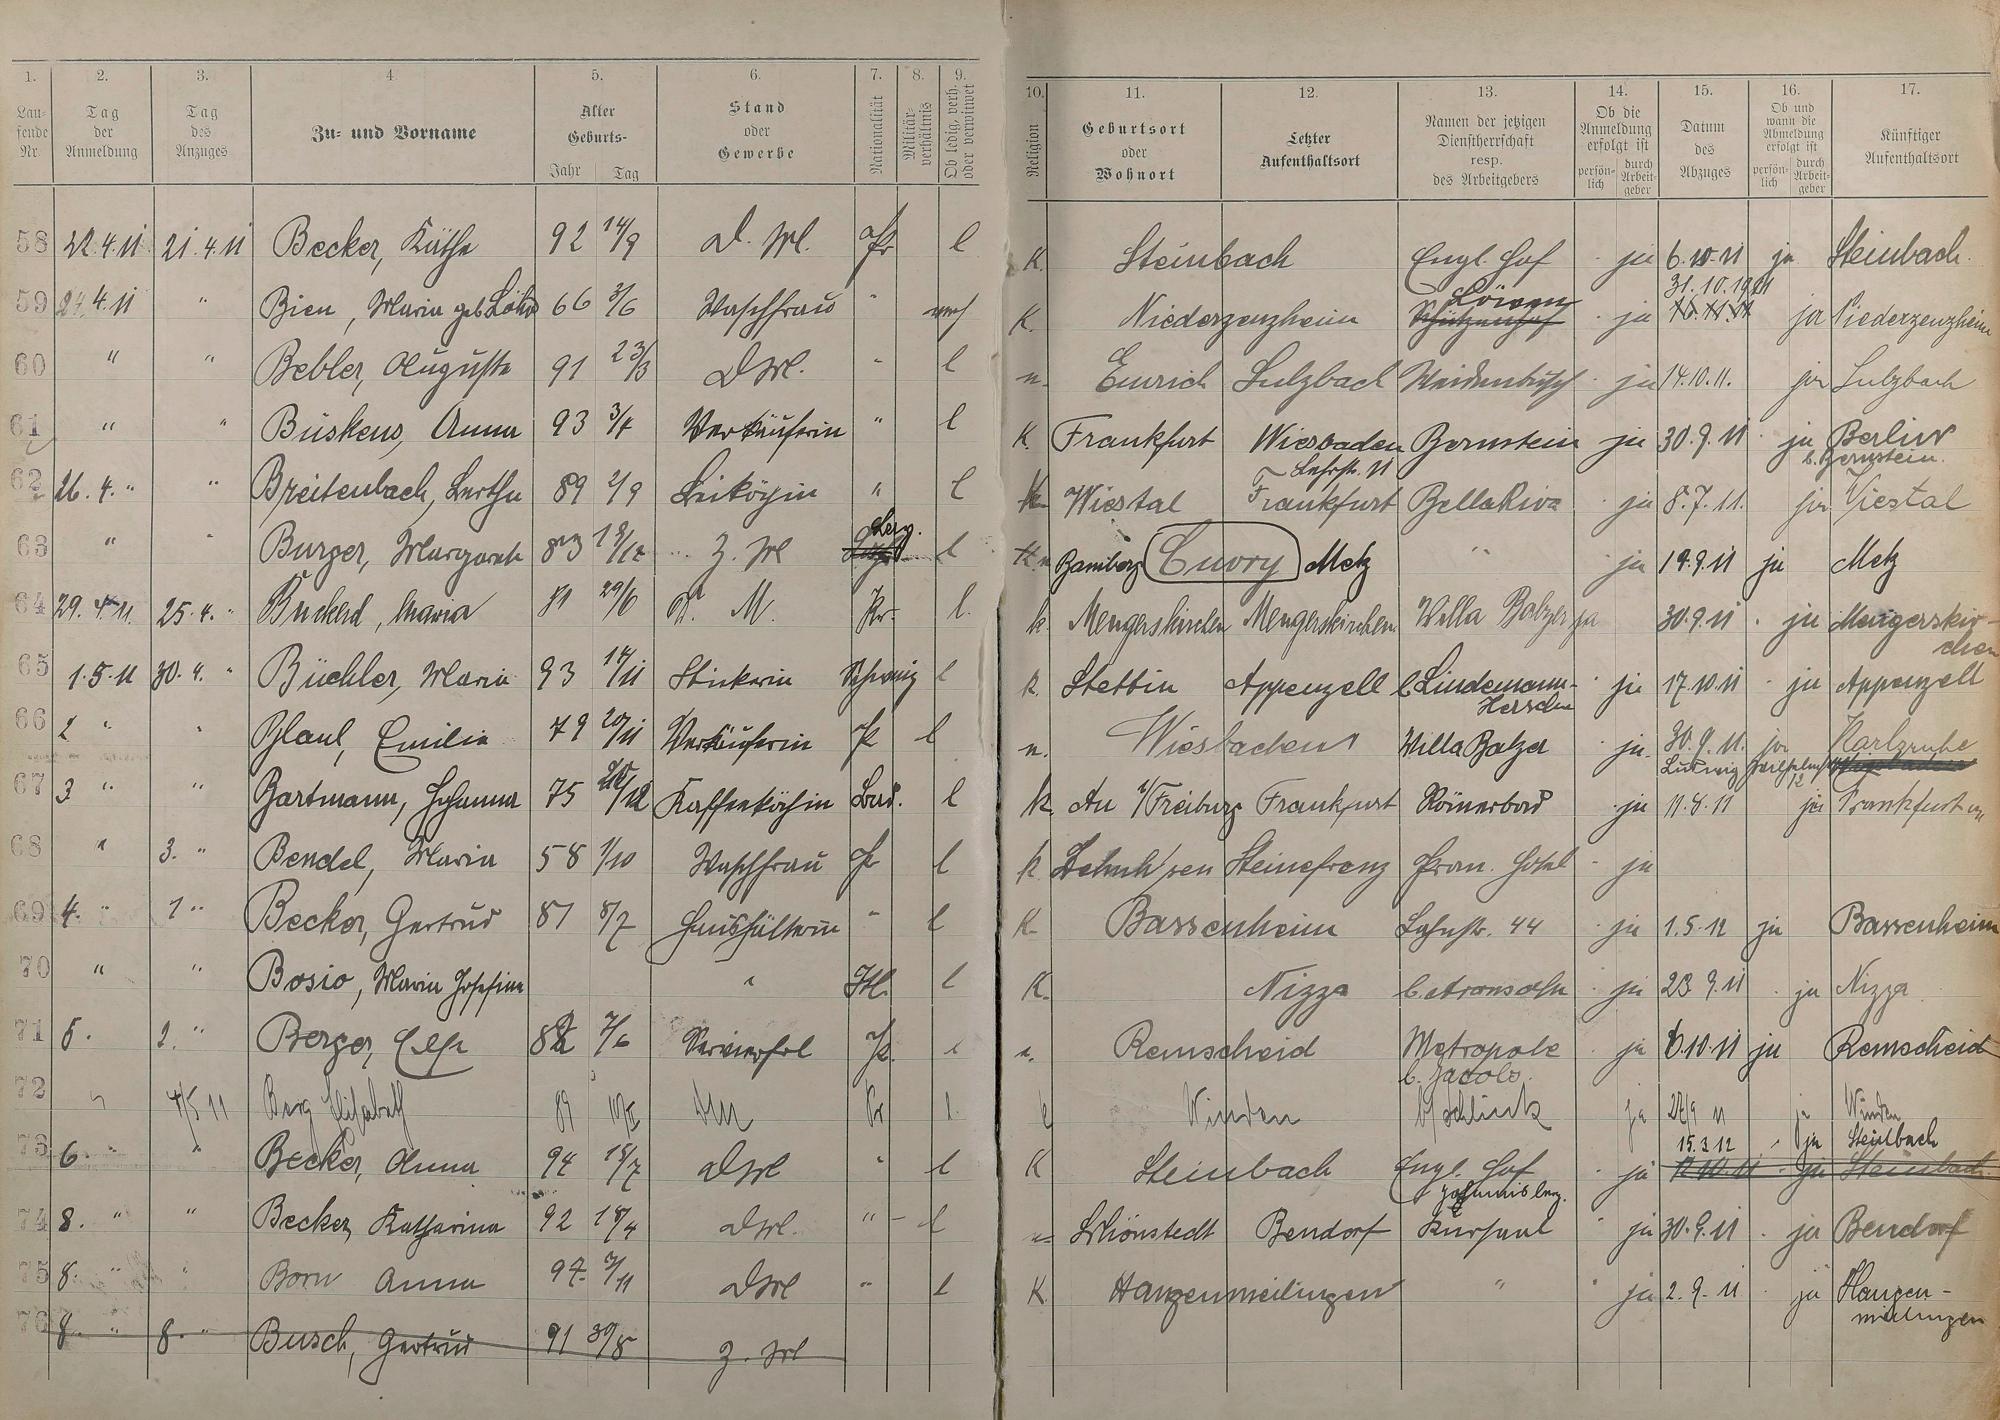 1. 2. 3. 4 5. 6. 7. 8. 9. 10. 11. 12. 13. 14. 15. 16. 17.
Laufende Nr. Tag der Anmeldung Tag des Anzuges Zu- und Vorname Alter Geburts- Jahr Tag Stand oder Gewerbe Nationalität Militärverhältnis Ob ledig, verh. oder verwitwet Religion Geburtsort oder Wohnort Letzter Aufenthaltsort Namen der jetzigen Dienstherrschaft resp. des Arbeitgebers Ob die Anmeldung erfolgt ist persönlich durch Arbeitgeber Datum des Abzuges Ob und wann die Abmeldung erfolgt ist persönlich durch Arbeitgeber Künftiger Aufenthaltsort
58 22.4.11 21.4.11 Becker, Käthe 92 14/9 D. M. Pr l K. Steinbach Engl. Hof ja 6.10.11 ja Steinbach.
59 24.4.11 " Bien, Maria geb. 66 3/6 Waschfrau " K. Niederzenzheim Schützenhof Löwen ja 31.10.1911 ja Niederzenzheim
60 " " Bebler, Auguste 91 23/3 DM. " l Emrich Sulzbach Weidenbusch ja 14.10.11. ja Sulzbach
61 " " Büskens, Anna 93 3/4 Verkäuferin " l K. Frankfurt Wiesbaden Bernstein ja 30.9.11 ja Berlin b. Bernstein.
62 26.4. " " Breitenbach, Bertha 89 2/9 Beiköchin " l K Wiestal Frankfurt Bella Riva ja 8.7.11. ja Viestal
63 " " Burger, Margarete 83 Z. M l Bamberg Cuvry Metz " ja 19.9.11 ja Metz
64 29.4.11. 25.4. " Maria 81 29/6 M. Pr. l. k. Mengerskirchen Mengerskirchen Villa Balzer ja 30.9.11 ja Mengerskirchen
65 1.5.11 30.4. " Büchler, Maria 93 14/11 Stickerin Schweiz l k. Stettin Appenzell b. Lindemann-Herschen ja 17.10.11 ja Appenzell
66 2 " " Blaul, Emilie 79 20/11 Verkäuferin Pr l Wiesbaden Villa Balzer ja 30.9.11. ja Karlsruhe Ludwig Wilhelmstr 12
67 3 " " Bartmann, Johanna 75 Kaffeeköchin Bad. l k. Au b/Freiburg Frankfurt Römerbad ja 11.8.11 ja Frankfurt
68 " 3. " Bendel, Maria 58 1/10 Waschfrau Pr l k. Steinefrenz Pran. Hotel ja
69 4. " 1 " Becker, Gertrud 81 8/7 Haushälterin " l K. Bassenheim Lahnstr. 44 ja 1.5.12 ja Bassenheim
70 " " Bosio, Maria Josefina " Itl. l K. Nizza ja 23.9.11 ja Nizza
71 5. 2. " Berger, Else 7/6 Servierfrl Pr. l Remscheid Metropole b. Jacobs. ja 6.10.11 ja Remscheid
72 4/5 11 Berg Elisabeth 89 DM Pr l. Winden ja 27/9 11 ja Winden
73 6. " " Becker, Anna 94 18/7 DM " l K Steinbach Engl. Hof ja 15.3.12 ja Steinbach
74 8. " " Becker, Katharina 92 18/4 DM. " l Schönstedt Bendorf Kursaal ja 30.9.11 ja Bendorf
75 8. " " Born Anna 94 3/11 DM " l K Hangenmeilingen " ja 2.9.11 ja Hangenmeilingen
76 8. " 8. " Busch, Gertrud 91 30/8 Z. M